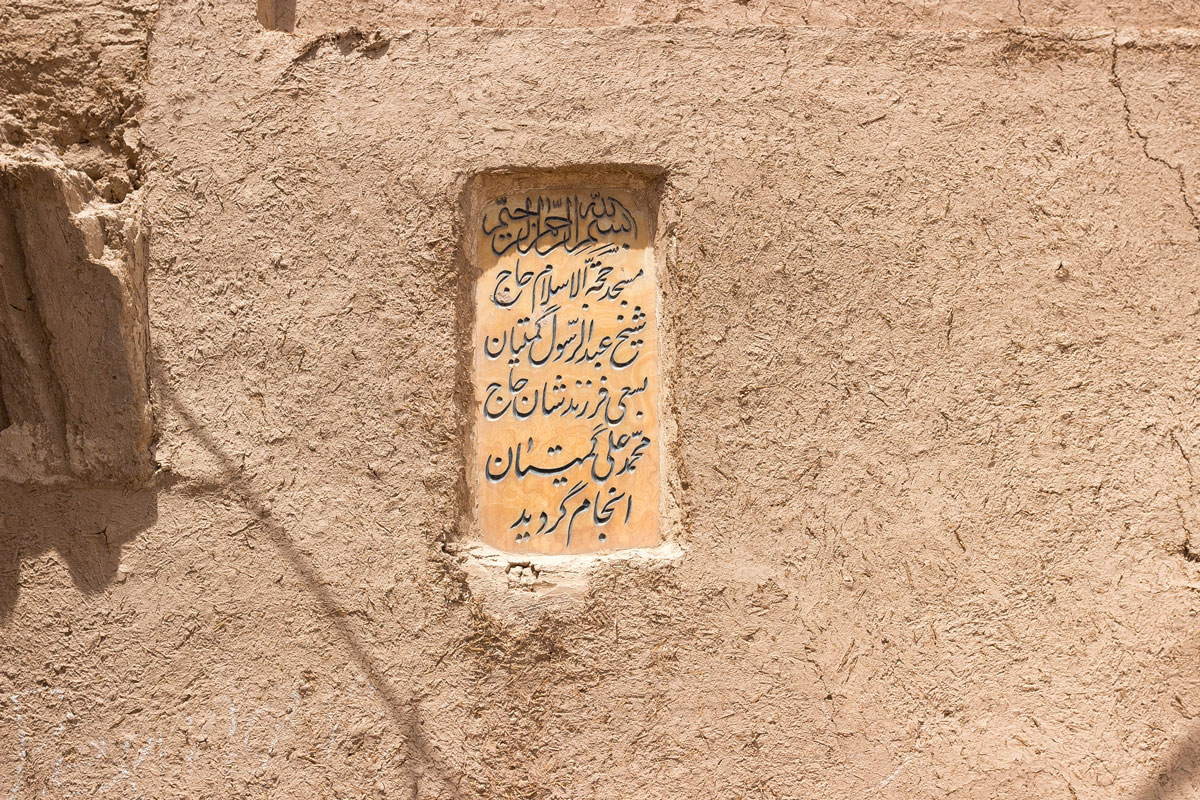 بسم الله الرحمن الرحیم
مسجد حجّة الاسلام حاج
شیخ عبدالرّسول گمنیان
بسعی فرزندشان حاج
محمّد علی گمنیان
انجام گردید